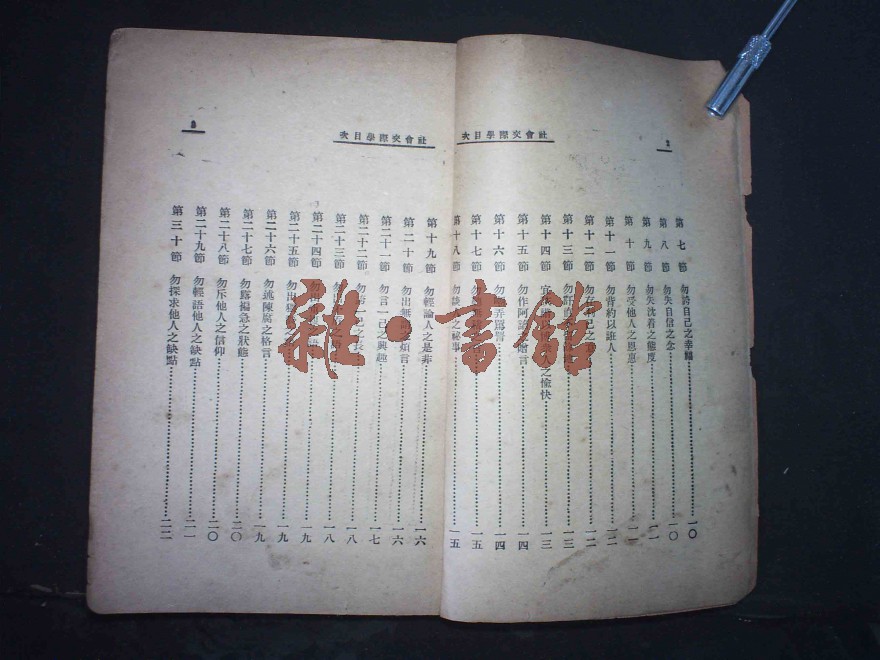 社會交際學目次
2
第七節 勿誇自己之幸福 一〇
第八節 勿失自信之念 一〇
第九節 勿失沈着之態度 一一
第十節 勿受他人之恩惠 一一
第十一節 勿背約以誑人 一二
第十二節 勿 己之 一二
第十三節 勿 一三
第十四節 宜 之愉快 一三
第十五節 勿作阿諛 言 一四
第十六節 弄罵詈 一四
第十七節 一五
第十八節 勿談 之祕事 一五
社會交際學目次
3
第十九節 勿輕論人之是非 一六
第二十節 勿出無 煩言 一六
第二十一節 勿言一己之興趣 一七
第二十二節 勿 己之長 一八
第二十三節 勿 之 一八
第二十四節 勿出 語 一九
第二十五節 勿出 之 一九
第二十六節 勿述陳腐之格言 一九
第二十七節 勿露褊急之狀態 二〇
第二十八節 勿斥他人之信仰 二〇
第二十九節 勿輕語他人之缺點 二一
第三十節 勿探求他人之缺點 二二
雜·書館